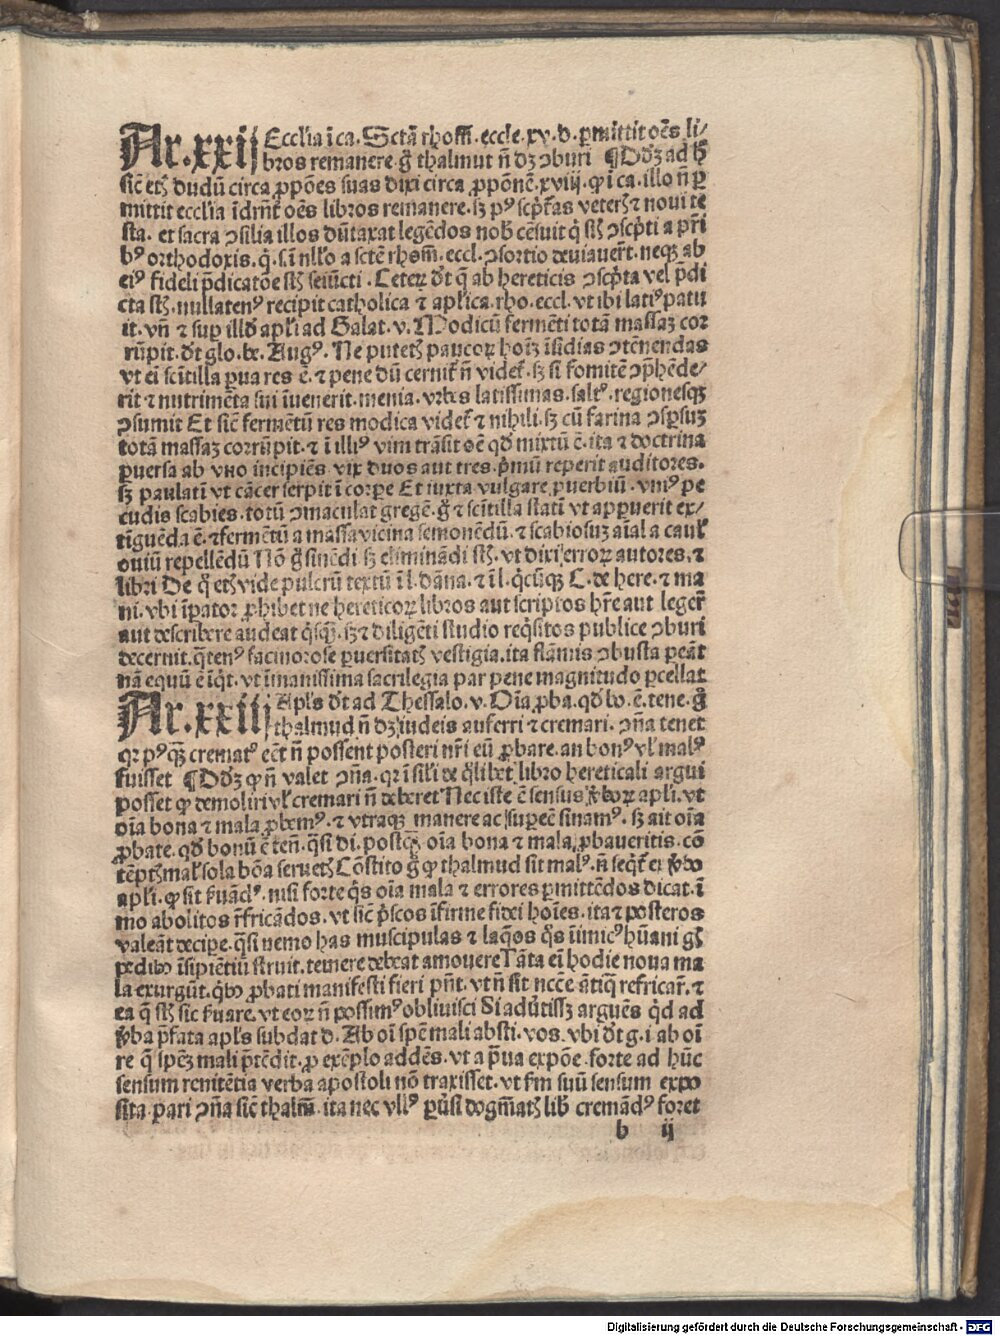 Ar.xxij Ecclīa ī ca. Sctā rhoɱ. eccle. xv. d. ꝑmittit oēs li/
bros remanere. gͦ thalmut ñ dꝫ ↄburi ¶ Ꝺdꝫ ad h̄
sic̄ etꝫ dudū circa ꝓpōes suas dixi circa ꝓpōnē. xviij. ꝙ ī ca. illo ñ ꝑ
mittit ecclīa īdrn̄t oēs libros remanere. sꝫ pꝰ scp̄t̄as veterꝫ ⁊ noui te
sta. et sacra ↄsilia illos dūtaxat legēdos nob̄ cēsuit q̄ st̄ ↄscp̄ti a pr̄i
bꝰ orthodoxis. q̄. s. ī nll̄o a sctē rhom̄. eccl. ↄsortio deuiauer̄t. neqꝫ ab
eiꝰ fideli p̄dicatōe st̄ seiūcti. Ceteꝝ dt̄ q̄ ab hereticis ↄscp̄ta vel p̄di
cta st̄. nullatenꝰ recipit catholica ⁊ apl̄ica. rho. eccl. vt ibi latiꝰ patu
it. vñ ⁊ suꝑ ill̄d apl̄i ad Galat. v. Modicū fermēti totā massaꝫ cor
rūpit. dt̄ glo. bt̄. Augꝰ. Ne putetꝫ paucoꝝ hoīm īsidias ↄtēnendas
vt ei̅ scītilla ꝑua res ē. ⁊ pene dū cernit̄ ñ videt̄. sꝫ si fomitē ↄp̄hēde/
rit ⁊ nutrimēta sui īuenerit. menia. vrbes latissimas. salt̄. regionesqꝫ
ↄsumit Et sic̄ fermētū res modica videt̄ ⁊ nihili. sꝫ cū farina ↄsꝑsuꝫ
totā massaꝫ corrūpit. ⁊ ī illiꝰ vim trāsit oē qd̄ mixtū ē. ita ⁊ doctrina
ꝑuersa ab vno incipiēs. vix duos aut tres. p̄mū reperit auditores.
sꝫ paulati̅ vt cācer serpit ī corpe Et iuxta vulgare ꝓuerbiū. vniꝰ pe
cudis scabies. totū ↄmaculat gregē. gͦ ⁊ scītilla stati̅ vt apꝑuerit ex/
tīguēda ē. ⁊ fermētū a massa vicina semonēdū. ⁊ scabiosuꝫ aīal a caul̄
ouiū repellēdū Nō gͦ sinēdi sꝫ eliminādi st̄. vt dixi erroꝝ autores. ⁊
libri De q̄ etꝫ vide pulcrū textū ī l. dāna. ⁊ ī l. q̄cūqꝫ C. de here. ⁊ ma
ni. vbi īpator ꝓhibet ne hereticoꝝ libros aut scriptos hr̄e aut leger̄
aut describere audeat q̄sqꝫ. sꝫ ⁊ diligēti studio reqͥsitos publice ↄburi
decernit. q̄tenꝰ facinorose ꝑuersitatꝫ vestigia. ita flāmis ↄbusta peāt
nā equū ē īqt̄. vt īmanissima sacrilegia par pene magnitudo ꝑcellat
Ar.xxiij Apl̄s dt̄ ad Thessalo. v. Oīa ꝓba. qd̄ bo. ē. tene. gͦ
thalmud ñ dꝫ iudeis auferri ⁊ cremari. ↄñа tenet
qꝛ pꝰqꝫ crematꝰ eēt ñ possent posteri nr̄i eū ꝓbare. an bonꝰ vl̄ malꝰ
fuisset ¶ Ꝺdꝫ ꝙ ñ valet ↄñа. qꝛ ī sil̄i de ql̄ibet libro hereticali argui
posset ꝙ demoliri vl̄ cremari ñ deberet Nec iste ē sensus v̄boꝝ apl̄i. vt
oīa bona ⁊ mala ꝓbemꝰ. ⁊ vtraqꝫ manere ac supeē sinamꝰ. sꝫ ait oīa
ꝓbate. qd̄ bonū ē ten̄. q̄si di. postqꝫ oīa bona ⁊ mala ꝓbaueritis. cō
tēptꝫ mal̄ sola bōa seruetꝫ Cōstito gͦ ꝙ thalmud sit malꝰ. ñ seqt̄ ex v̄bo
apl̄i. ꝙ sit s̄uādꝰ. nisi forte q̄s oīa mala ⁊ errores ꝑmittēdos dicat. ī
mo abolitos r̄fricādos. vt sic̄ p̄scos īfirme fidei hoīes. ita ⁊ posteros
valeāt decipe. q̄si nemo has muscipulas ⁊ laq̄os q̄s īimicꝰ hūani gn̄s
pedibꝰ īsipiētiū struit. temere debeat amouere Tāta ei̅ hodie noua ma
la exurgūt. qͥbꝰ ꝓbati manifesti fieri pn̄t. vt ñ sit nccē ātiqͣ refricar̄. ⁊
ea q̄ st̄ sic s̄uare. vt eoꝝ ñ possimꝰ obliuisci Si adūtissꝫ arguēs qd̄ ad
v̄ba p̄fata apl̄s subdat d. Ab oī spē mali absti. vos. vbi dt̄ g. i ab oī
re q̄ spēꝫ mali p̄tēdit. ꝓ exēplo addēs. vt a p̄ua expōe. forte ad hūc
sensum renitētia verba apostoli nō traxisset. vt ẜm suū sensum expo
sita. pari ↄña sic̄ thalm̄. ita nec vllꝰ ꝑūsi dogm̄atꝫ lib̄ cremādꝰ foret
b ij
Digitalisierung gefördert durch die Deutsche Forschungsgemeinschaft - DFG